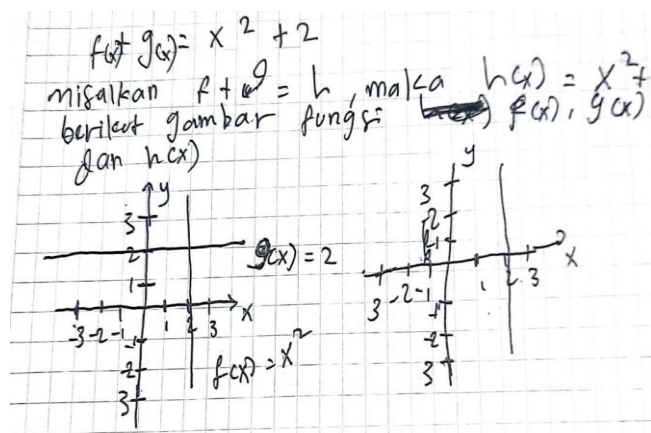 f(x)+ g(x) = x² + 2
misalkan f + g = h, maka h(x) = x²+
berikut gambar fungsi f(x), g(x)
dan h(x)
y
3
2
1
-3 -2 -1 1 2 3 x
-1
-2
3
g(x) = 2
f(x) = x²
y
3
2
1
3 -2 -1 1 2 3 x
-1
-2
3